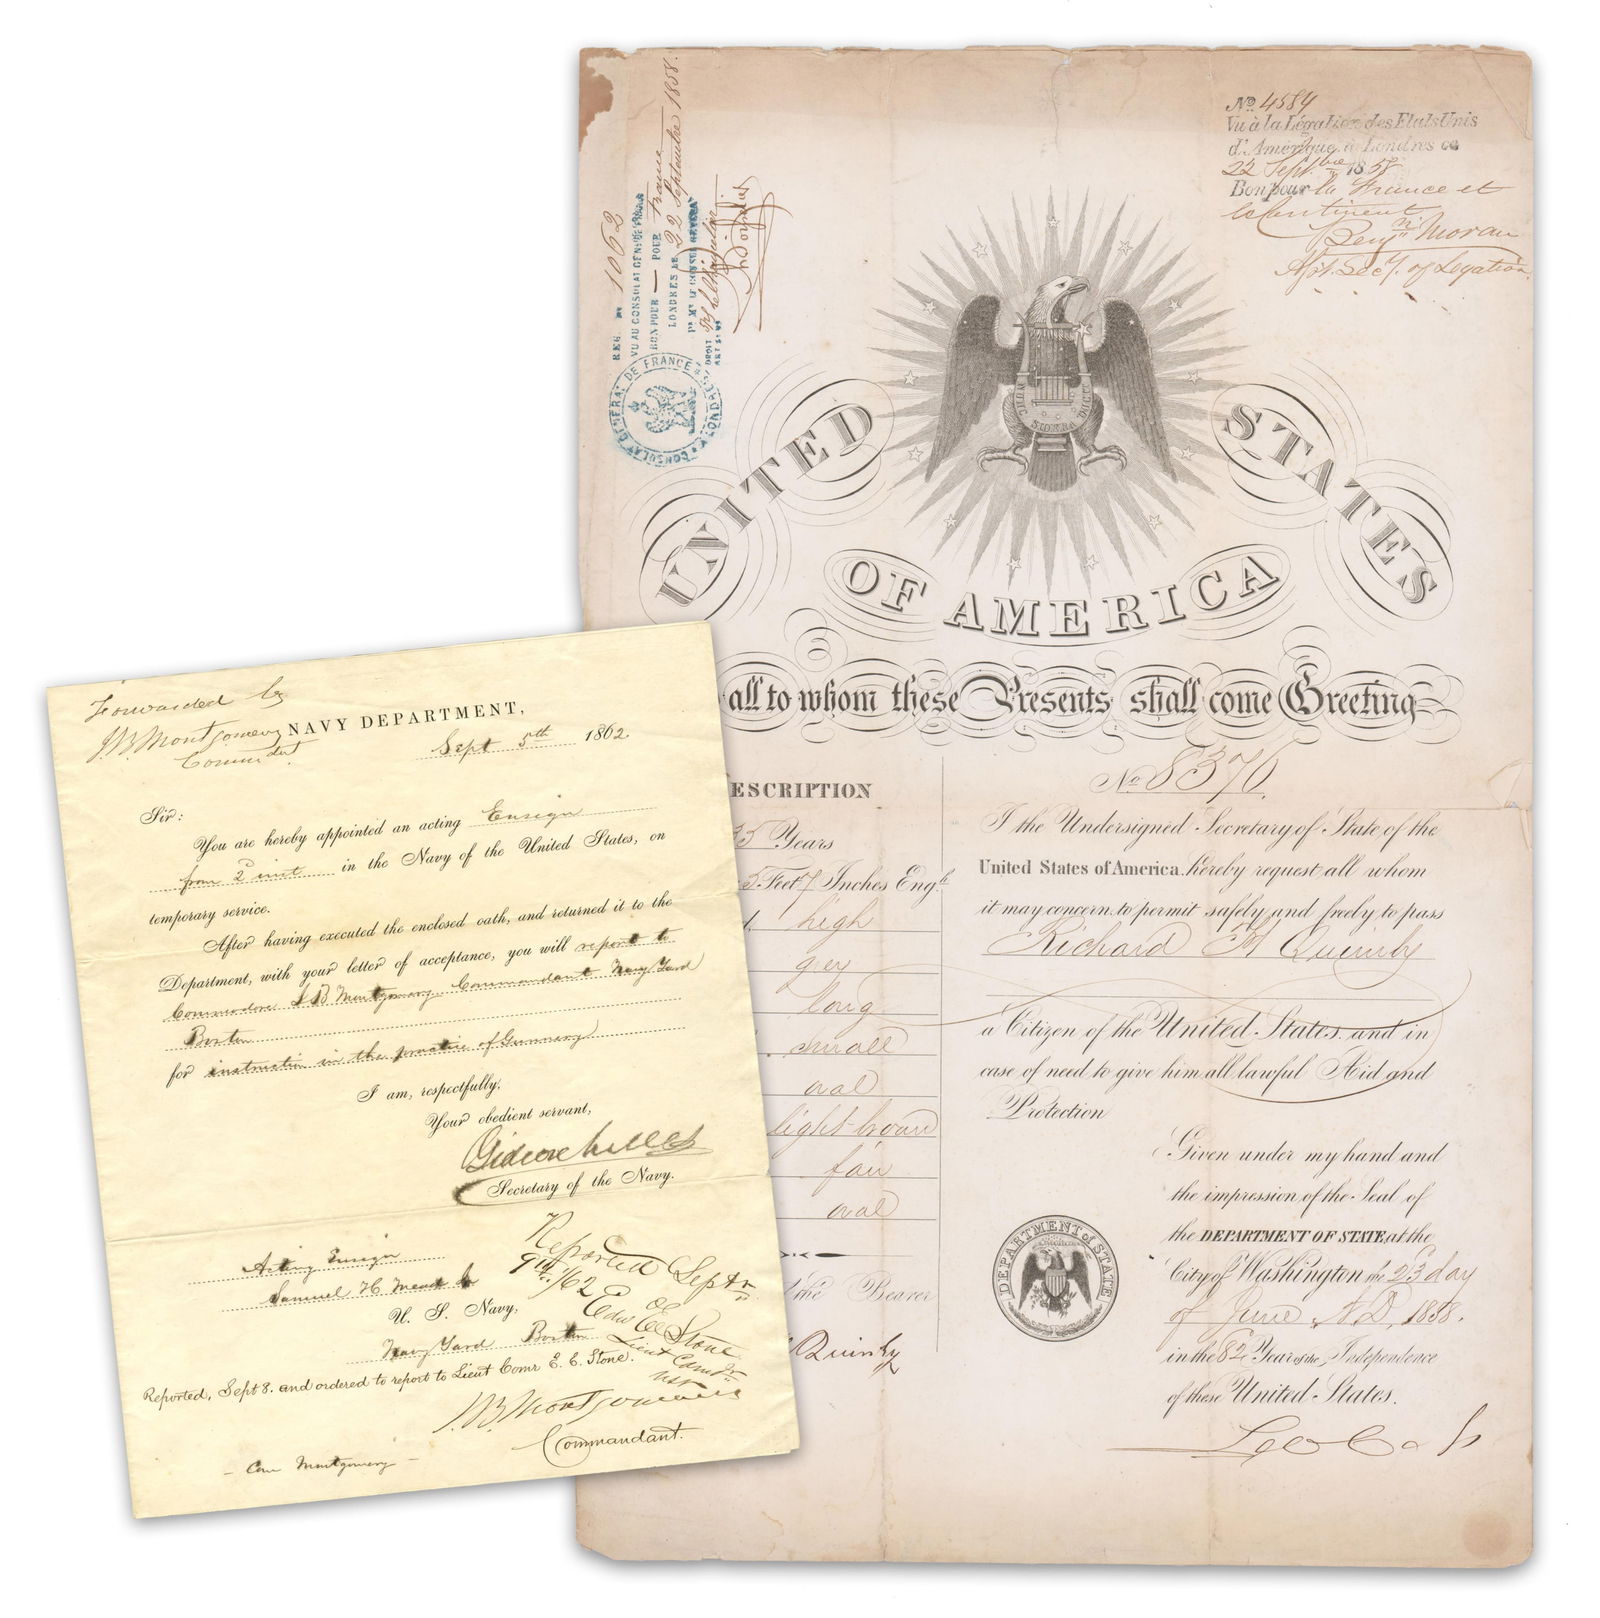 Forwarded by
J.B. Montgomery
Commdt.
NAVY DEPARTMENT,
Sept 5th 1862.
Sir:
You are hereby appointed an acting Ensign
from 2d inst in the Navy of the United States, on
temporary service.
After having executed the enclosed oath, and returned it to the
Department, with your letter of acceptance, you will report to
Commodore J B Montgomery Commandant Navy Yard
Boston
for instruction in the practice of Gunnery
I am, respectfully,
Your obedient servant,
Gideon Welles
Secretary of the Navy.
Acting Ensign
Samuel H Mead Jr
U. S. Navy,
Navy Yard Boston
Reported Septr
9th /62
Edwd C Stone
Lieut Comdr
USN
Reported, Sept 8. and ordered to report to Lieut Comr E. C. Stone.
J.B. Montgomery
Commandant.
- Com Montgomery -
REG. No 1062
VU AU CONSULAT GENERAL DE FRANCE
BON POUR — POUR France
LONDRES LE 22 Septembre 1858.
CONSULAT GENERAL DE FRANCE
LONDRES
No 4584
Vu à la Légation des Etats Unis
d'Amérique à Londres ce
22 Septbre 1858
Bon pour la France et
le Continent
Benjn Moran
Asst. Secy. of Legation.
UNITED STATES
OF AMERICA
all to whom these Presents shall come Greeting
ESCRIPTION
35 Years
5 Feet 7 Inches Engh
high
grey
long
small
oval
light-brown
fair
oval
the Bearer
Quinby
No 8376.
I the Undersigned Secretary of State of the
United States of America, hereby request all whom
it may concern, to permit safely and freely to pass
Richard H Quinby
a Citizen of the United States and in
case of need to give him all lawful Aid and
Protection
Given under my hand and
the impression of the Seal of
the DEPARTMENT OF STATE, at the
City of Washington the 23d day
of June A.D. 1858.
in the 82 Year of the Independence
of these United States.
Lew Cass
DEPARTMENT of STATE